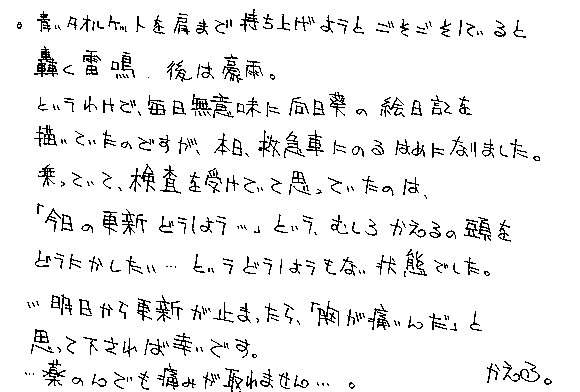 。青いタオルケットを肩まで持ち上げようとごそごそしていると
轟く雷鳴。後は豪雨。
というわけで、毎日無意味に向日葵の絵日記を
描いていたのですが、本日、救急車にのるはめになりました。
乗っていて、検査を受けてて思っていたのは、
「今日の更新どうしよう…」という、むしろかえるの頭を
どうにかしたい…というどうしようもない状態でした。
…明日から更新が止まったら、「胸が痛いんだ」と
思って下されば幸いです。
…薬のんでも痛みが取れません…。
かえる。